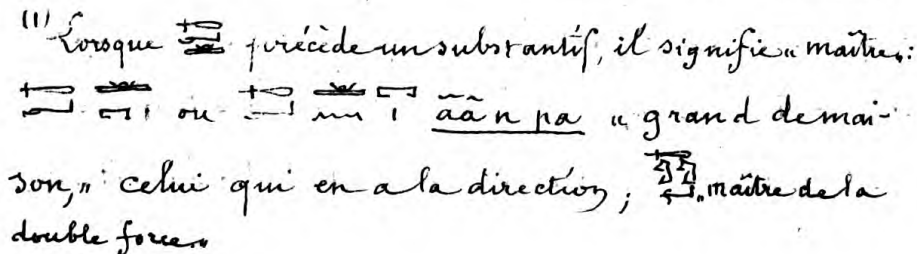 (1) Lorsque précède un substantif, il signifie « maître » :
ou ãã n pa « grand de mai-
son, » celui qui en a la direction ; « maître de la
double force. »